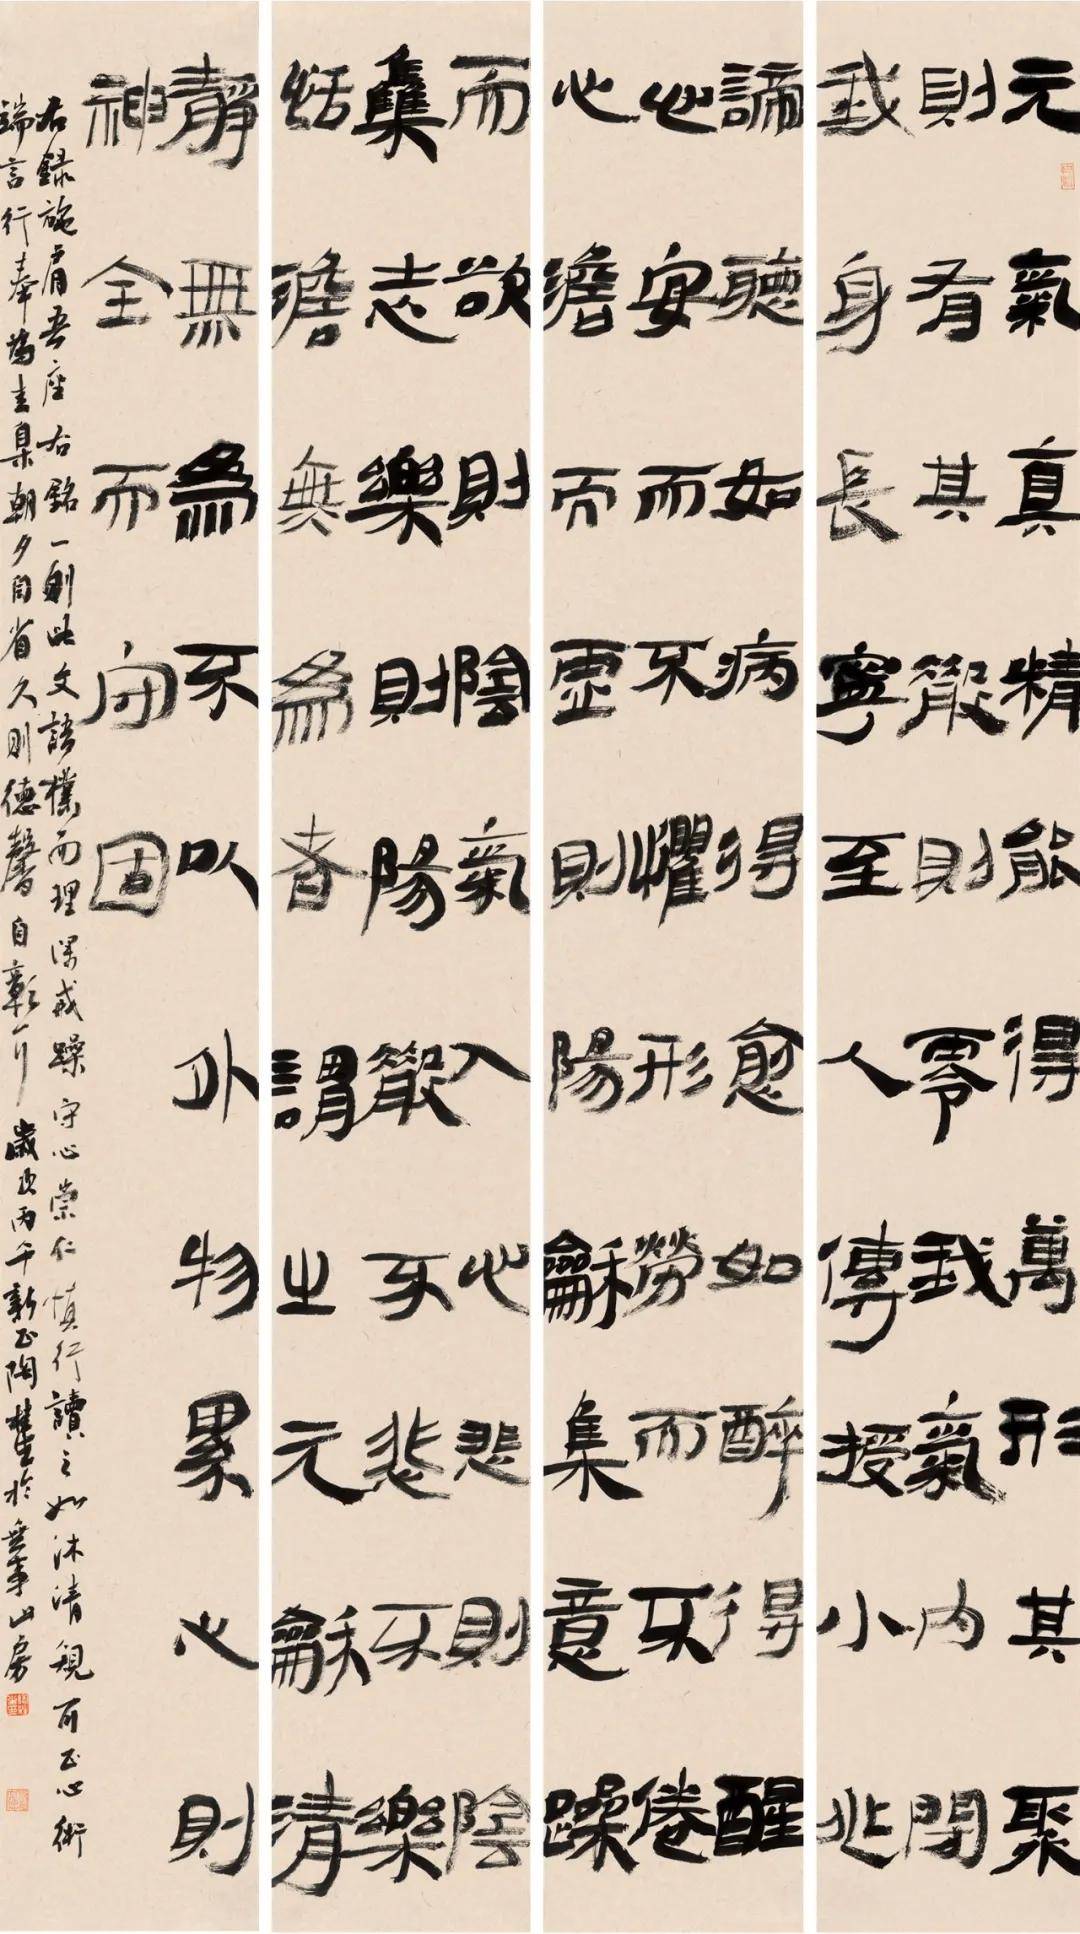 元氣真精能得萬形其聚
則有其散則零我氣內閉
我身長寧至人傳授小兆
諦聽如病得愈如醉得醒
心安而不懼形勞而不倦
心澹而虛則陽和集意躁
而欲則陰氣入心悲則陰
集志樂則陽散不悲不樂
恬澹無為者謂之元和清
靜無為不以外物累心則
神全而守固
右錄施肩吾座右銘一則此文語樸而理深戒躁守心崇仁慎行讀之如沐清規可正心術
端言行奉為圭臬朝夕自省久則德馨自彰 歲次丙午新正陶 於無事山房